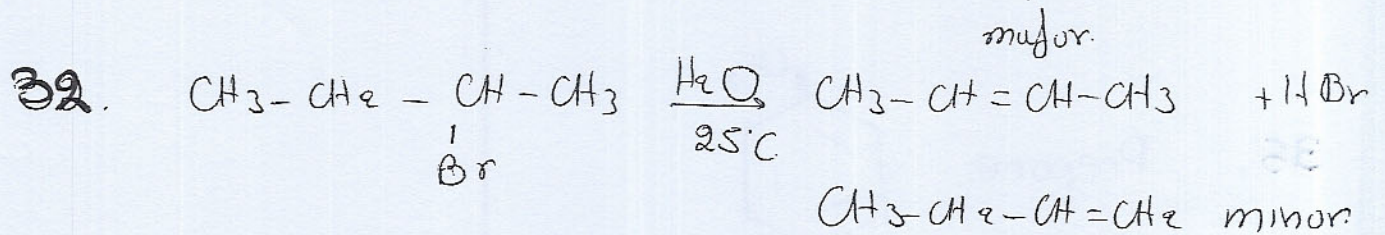 major.
32. CH3-CH2-CH-CH3 H2O CH3-CH=CH-CH3 + HBr
Br 25°C
CH3-CH2-CH=CH2 minor.